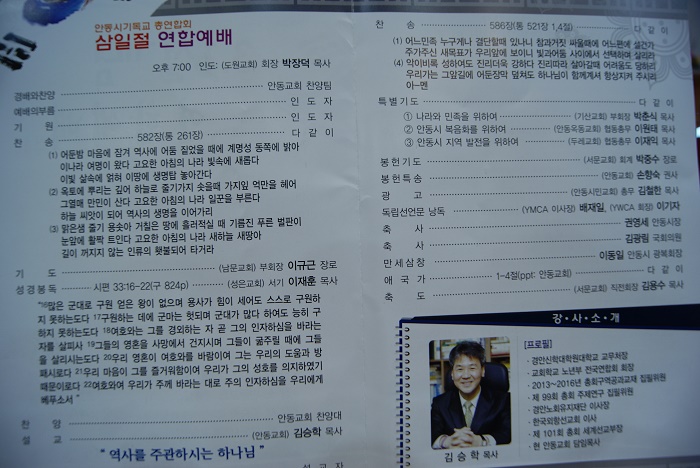 안동시기독교 총연합회
삼일절 연합예배
오후 7:00 인도: (도원교회) 회장 박장덕 목사
경배와찬양 안동교회 찬양팀
예배의부름 인 도 자
기 원 인 도 자
찬 송 582장(통 261장) 다 같 이
(1) 어둔밤 마음에 잠겨 역사에 어둠 짙었을 때에 계명성 동쪽에 밝아
이나라 여명이 왔다 고요한 아침의 나라 빛속에 새롭다
이빛 삶속에 얽혀 이땅에 생명탑 놓아간다
(2) 옥토에 뿌리는 깊어 하늘로 줄기가지 솟을때 가지잎 억만을 헤어
그열매 만민이 산다 고요한 아침의 나라 일꾼을 부른다
하늘 씨앗이 되어 역사의 생명을 이어가리
(3) 맑은샘 줄기 용솟아 거칠은 땅에 흘러적실 때 기름진 푸른 벌판이
눈앞에 활짝 트인다 고요한 아침의 나라 새하늘 새땅아
길이 꺼지지 않는 인류의 횃불되어 타거라
기 도 (남문교회) 부회장 이규근 장로
성경봉독 시편 33:16~22(구 824p) (성은교회) 서기 이재훈 목사
"16많은 군대로 구원 얻은 왕이 없으며 용사가 힘이 세어도 스스로 구원하
지 못하는도다 17구원하는 데에 군마는 헛되며 군대가 많다 하여도 능히 구
하지 못하는도다 18여호와는 그를 경외하는 자 곧 그의 인자하심을 바라는
자를 살피사 19그들의 영혼을 사망에서 건지시며 그들이 굶주릴 때에 그들
을 살리시는도다 20우리 영혼이 여호와를 바람이여 그는 우리의 도움과 방
패시로다 21우리 마음이 그를 즐거워함이여 우리가 그의 성호를 의지하였기
때문이로다 22여호와여 우리가 주께 바라는 대로 주의 인자하심을 우리에게
베푸소서 "
찬 양 안동교회 찬양대
설 교 (안동교회) 김승학 목사
" 역사를 주관하시는 하나님 "
찬 송 586장(통 521장 1,4절) 다 같 이
(1) 어느민족 누구게나 결단할때 있나니 참과거짓 싸울때에 어느편에 설건가
주가주신 새목표가 우리앞에 보이니 빛과어둠 사이에서 선택하며 살리라
(4) 악이비록 성하여도 진리더욱 강하다 진리따라 살아갈때 어려움도 당하리
우리가는 그앞길에 어둔장막 덮쳐도 하나님이 함께계셔 항상지켜 주시리
아-멘
특별기도 다 같 이
① 나라와 민족을 위하여 (기산교회) 부회장 박춘식 목사
② 안동시 복음화를 위하여 (안동옥동교회) 협동총무 이원태 목사
③ 안동시 지역 발전을 위하여 (두레교회) 협동총무 이재익 목사
봉헌기도 (서문교회) 회계 박중수 장로
봉헌특송 (안동교회) 손항숙 권사
광 고 (안동시민교회) 총무 김철한 목사
독립선언문 낭독 (YMCA 이사장) 배재일, (YWCA 회장) 이기자
축 사 권영세 안동시장
축 사 김광림 국회의원
만세삼창 이동일 안동시 광복회장
애 국 가 1~4절(ppt: 안동교회) 다 같 이
축 도 (서문교회) 직전회장 김용수 목사
강·사·소·개
[프로필]
· 경안신학대학원대학교 교무처장
· 교회학교 노년부 전국연합회 회장
· 2013~2016년 총회구역공과교재 집필위원
· 제 99회 총회 주제연구 집필위원
· 경안노회유지재단 이사장
· 한국외항선교회 이사
· 제 101회 총회 세계선교부장
· 현 안동교회 담임목사
김 승 학 목사